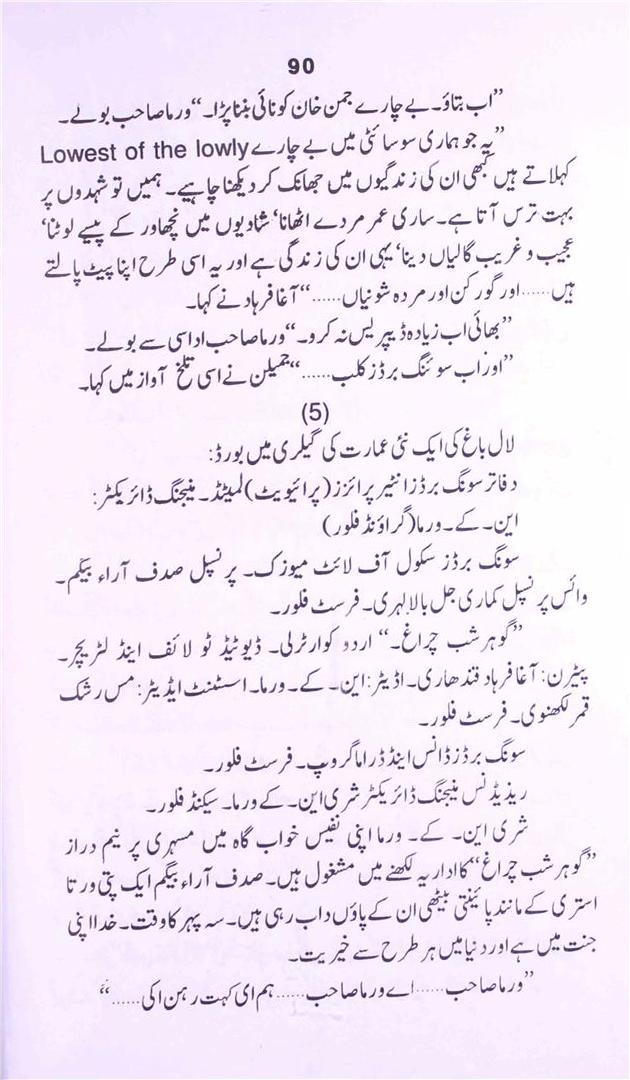 90
”اب بتاؤ۔ بے چارے جمن خان کو نائی بننا پڑا۔“ ورما صاحب بولے۔
”یہ جو ہماری سوسائٹی میں بے چارے Lowest of the lowly
کہلاتے ہیں کبھی ان کی زندگیوں میں جھانک کر دیکھنا چاہیے۔ ہمیں تو شہدوں پر
بہت ترس آتا ہے۔ ساری عمر مردے اٹھانا‘ شادیوں میں نچھاور کے پیسے لوٹنا‘
عجیب و غریب گالیاں دینا‘ یہی ان کی زندگی ہے اور یہ اسی طرح اپنا پیٹ پالتے
ہیں...... اور گورکن اور مردہ شونیاں......“ آغا فرہاد نے کہا۔
”بھائی اب زیادہ ڈیپریس نہ کرو۔“ ورما صاحب اداسی سے بولے۔
”اور اب سونگ برڈز کلب......“ جمیلن نے اسی تلخ آواز میں کہا۔
(5)
لال باغ کی ایک نئی عمارت کی گیلری میں بورڈ:
دفاتر سونگ برڈز انٹیرپرائزز (پرائیویٹ) لمیٹڈ۔ منیجنگ ڈائریکٹر:
این۔ کے۔ ورما (گراؤنڈ فلور)
سونگ برڈز سکول آف لائٹ میوزک۔ پرنسپل صدف آراء بیگم۔
وائس پرنسپل کماری جل بالا لہری۔ فرسٹ فلور۔
”گوہر شب چراغ۔“ اردو کوارٹرلی۔ ڈیوٹیڈ ٹو لائف اینڈ لٹریچر۔
پیٹرن: آغا فرہاد قندھاری۔ اڈیٹر: این۔ کے۔ ورما۔ اسسٹنٹ ایڈیٹر: مس رشک
قمر لکھنوی۔ فرسٹ فلور۔
سونگ برڈز ڈانس اینڈ ڈراما گروپ۔ فرسٹ فلور۔
ریذیڈنس منیجنگ ڈائریکٹر شری این۔ کے ورما۔ سیکنڈ فلور۔
شری این۔ کے۔ ورما اپنی نفیس خواب گاہ میں مسہری پر نیم دراز
”گوہر شب چراغ“ کا اداریہ لکھنے میں مشغول ہیں۔ صدف آراء بیگم ایک پتی ورتا
استری کے مانند پائینتی بیٹھی ان کے پاؤں داب رہی ہیں۔ سہ پہر کا وقت۔ خدا اپنی
جنت میں ہے اور دنیا میں ہر طرح سے خیریت۔
”ورما صاحب...... اے ورما صاحب...... ہم ای کہت رہن اکی......“